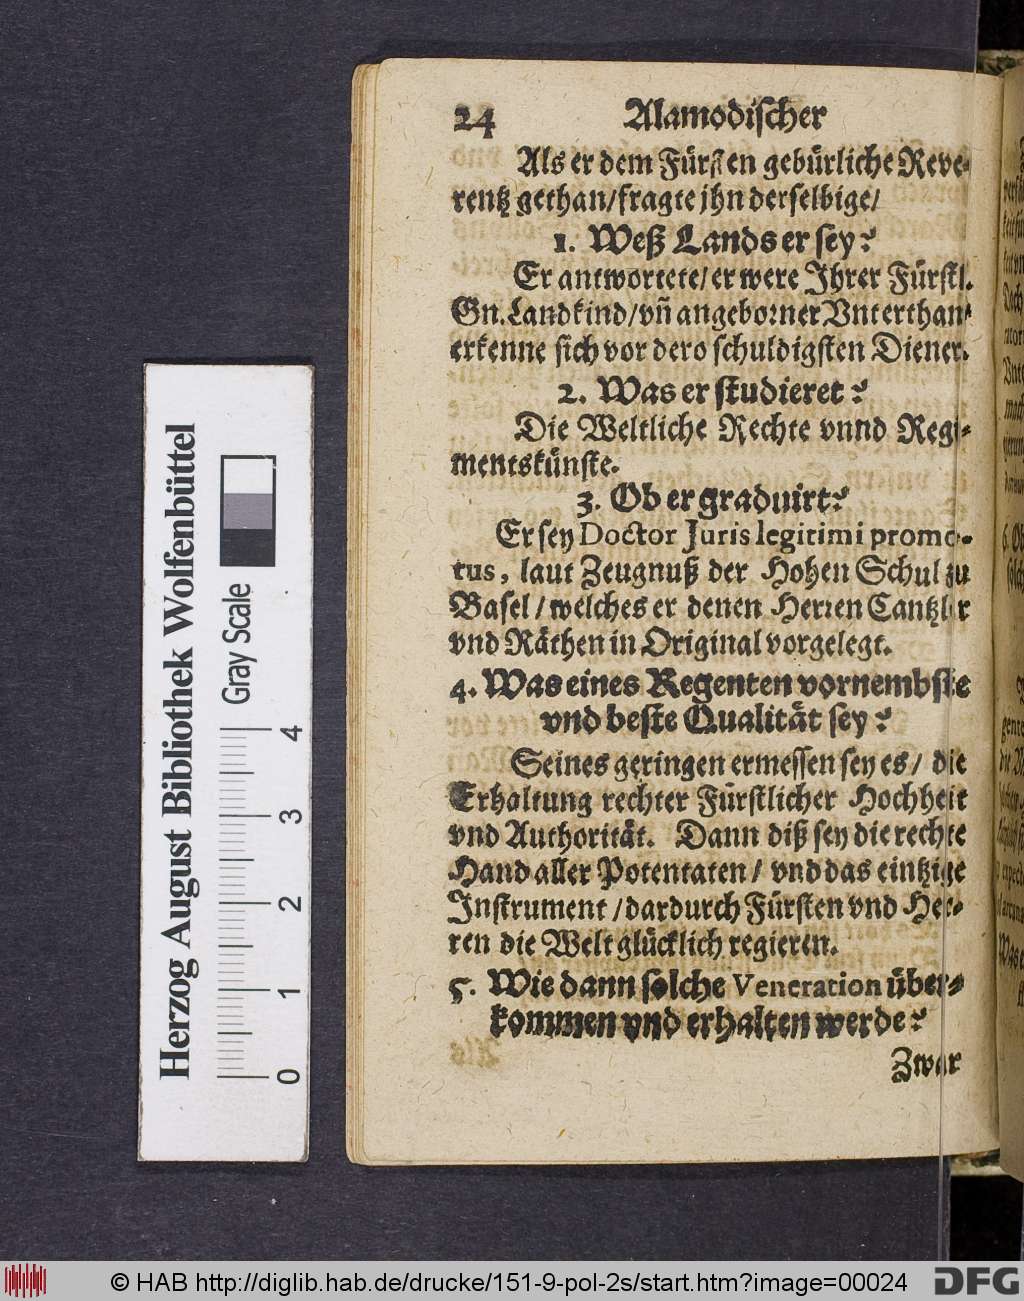 24 Alamodischer
Als er dem Fürsten gebürliche Reve-
rentz gethan/fragte jhn derselbige/
1. Weß Lands er sey?
Er antwortete/er were Ihrer Fürstl.
Gn. Landkind/vñ angeborner Vnterthan/
erkenne sich vor dero schuldigsten Diener.
2. Was er studieret?
Die Weltliche Rechte vnnd Regi-
mentskünste.
3. Ob er graduirt?
Er sey Doctor Juris legitimi promo-
tus, laut Zeugnuß der Hohen Schul zu
Basel/welches er denen Herren Cantzler
vnd Räthen in Original vorgelegt.
4. Was eines Regenten vornembste
vnd beste Qualität sey?
Seines geringen ermessen sey es/ die
Erhaltung rechter Fürstlicher Hochheit
vnd Authorität. Dann diß sey die rechte
Hand aller Potentaten/ vnd das eintzige
Instrument/dardurch Fürsten vnd Her-
ren die Welt glücklich regieren.
5. Wie dann solche Veneration über-
kommen vnd erhalten werde?
Zwar
Herzog August Bibliothek Wolfenbüttel
Gray Scale
0 1 2 3 4
© HAB http://diglib.hab.de/drucke/151-9-pol-2s/start.htm?image=00024
DFG